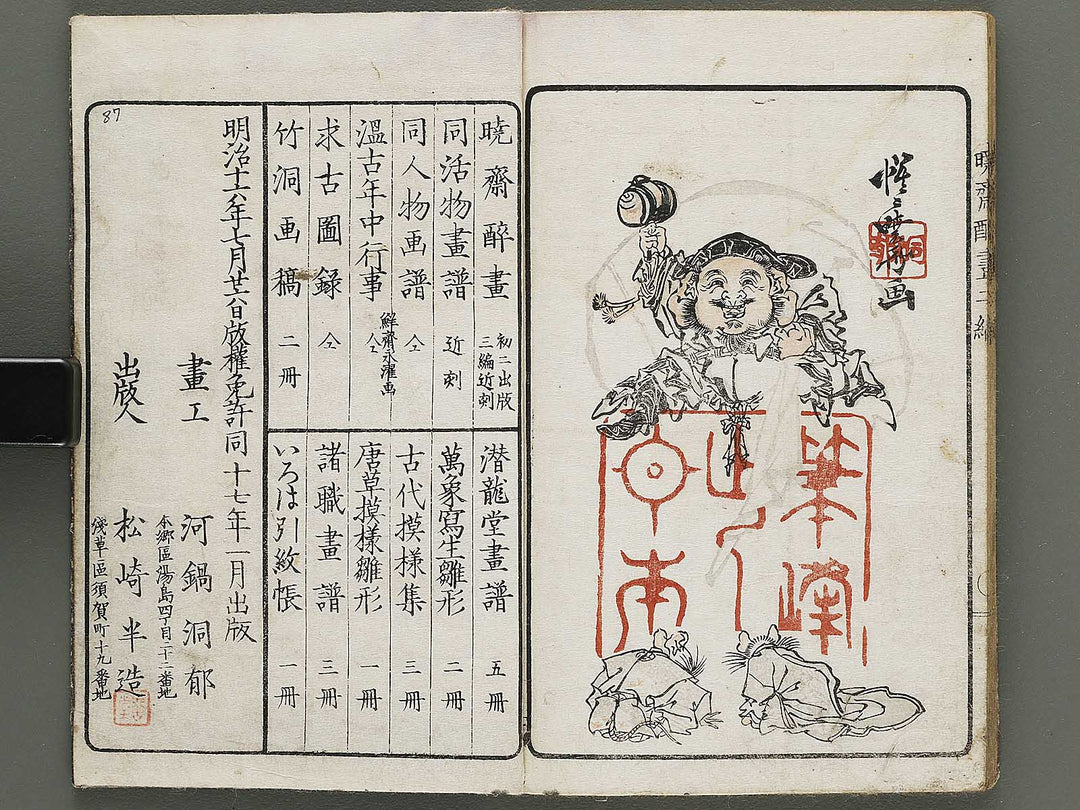 惺々暁斎画
日本
山人
筆峰
暁斎酔畫二編
暁齋醉畫 初二出版 三編近刻
同活物畫譜 近刻
同人物画譜 仝
溫古年中行事 鮮齋永濯画 仝
求古圖録 仝
竹洞画稿 二冊
潜龍堂畫譜 五冊
萬象寫生雛形 二冊
古代摸様集 三冊
唐草摸様雛形 一冊
諸職畫譜 三冊
いろは引紋帳 一冊
明治十六年七月廿六日版權免許同十七年一月出版
畫工
本郷區湯島四丁目二十二番地
河鍋洞郁
出版人
淺草區須賀町十九番地
松崎半造
87